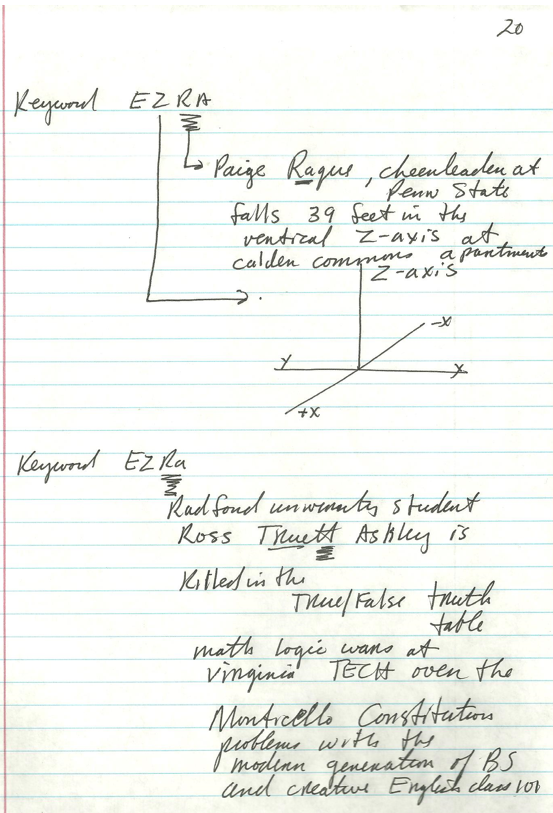 20
Keyword EZRA
Paige Raque, cheerleader at
Penn State
falls 39 feet in the
vertical Z-axis at
calden commons apartments
Z-axis
-x
Y
x
+x
Keyword EZRa
Radford university student
Ross Truett Ashley is
Killed in the
True/False truth
table
math logic wars at
virginia TECH over the
Monticello Constitution
problems with the
modern generation of BS
and creative English class 101